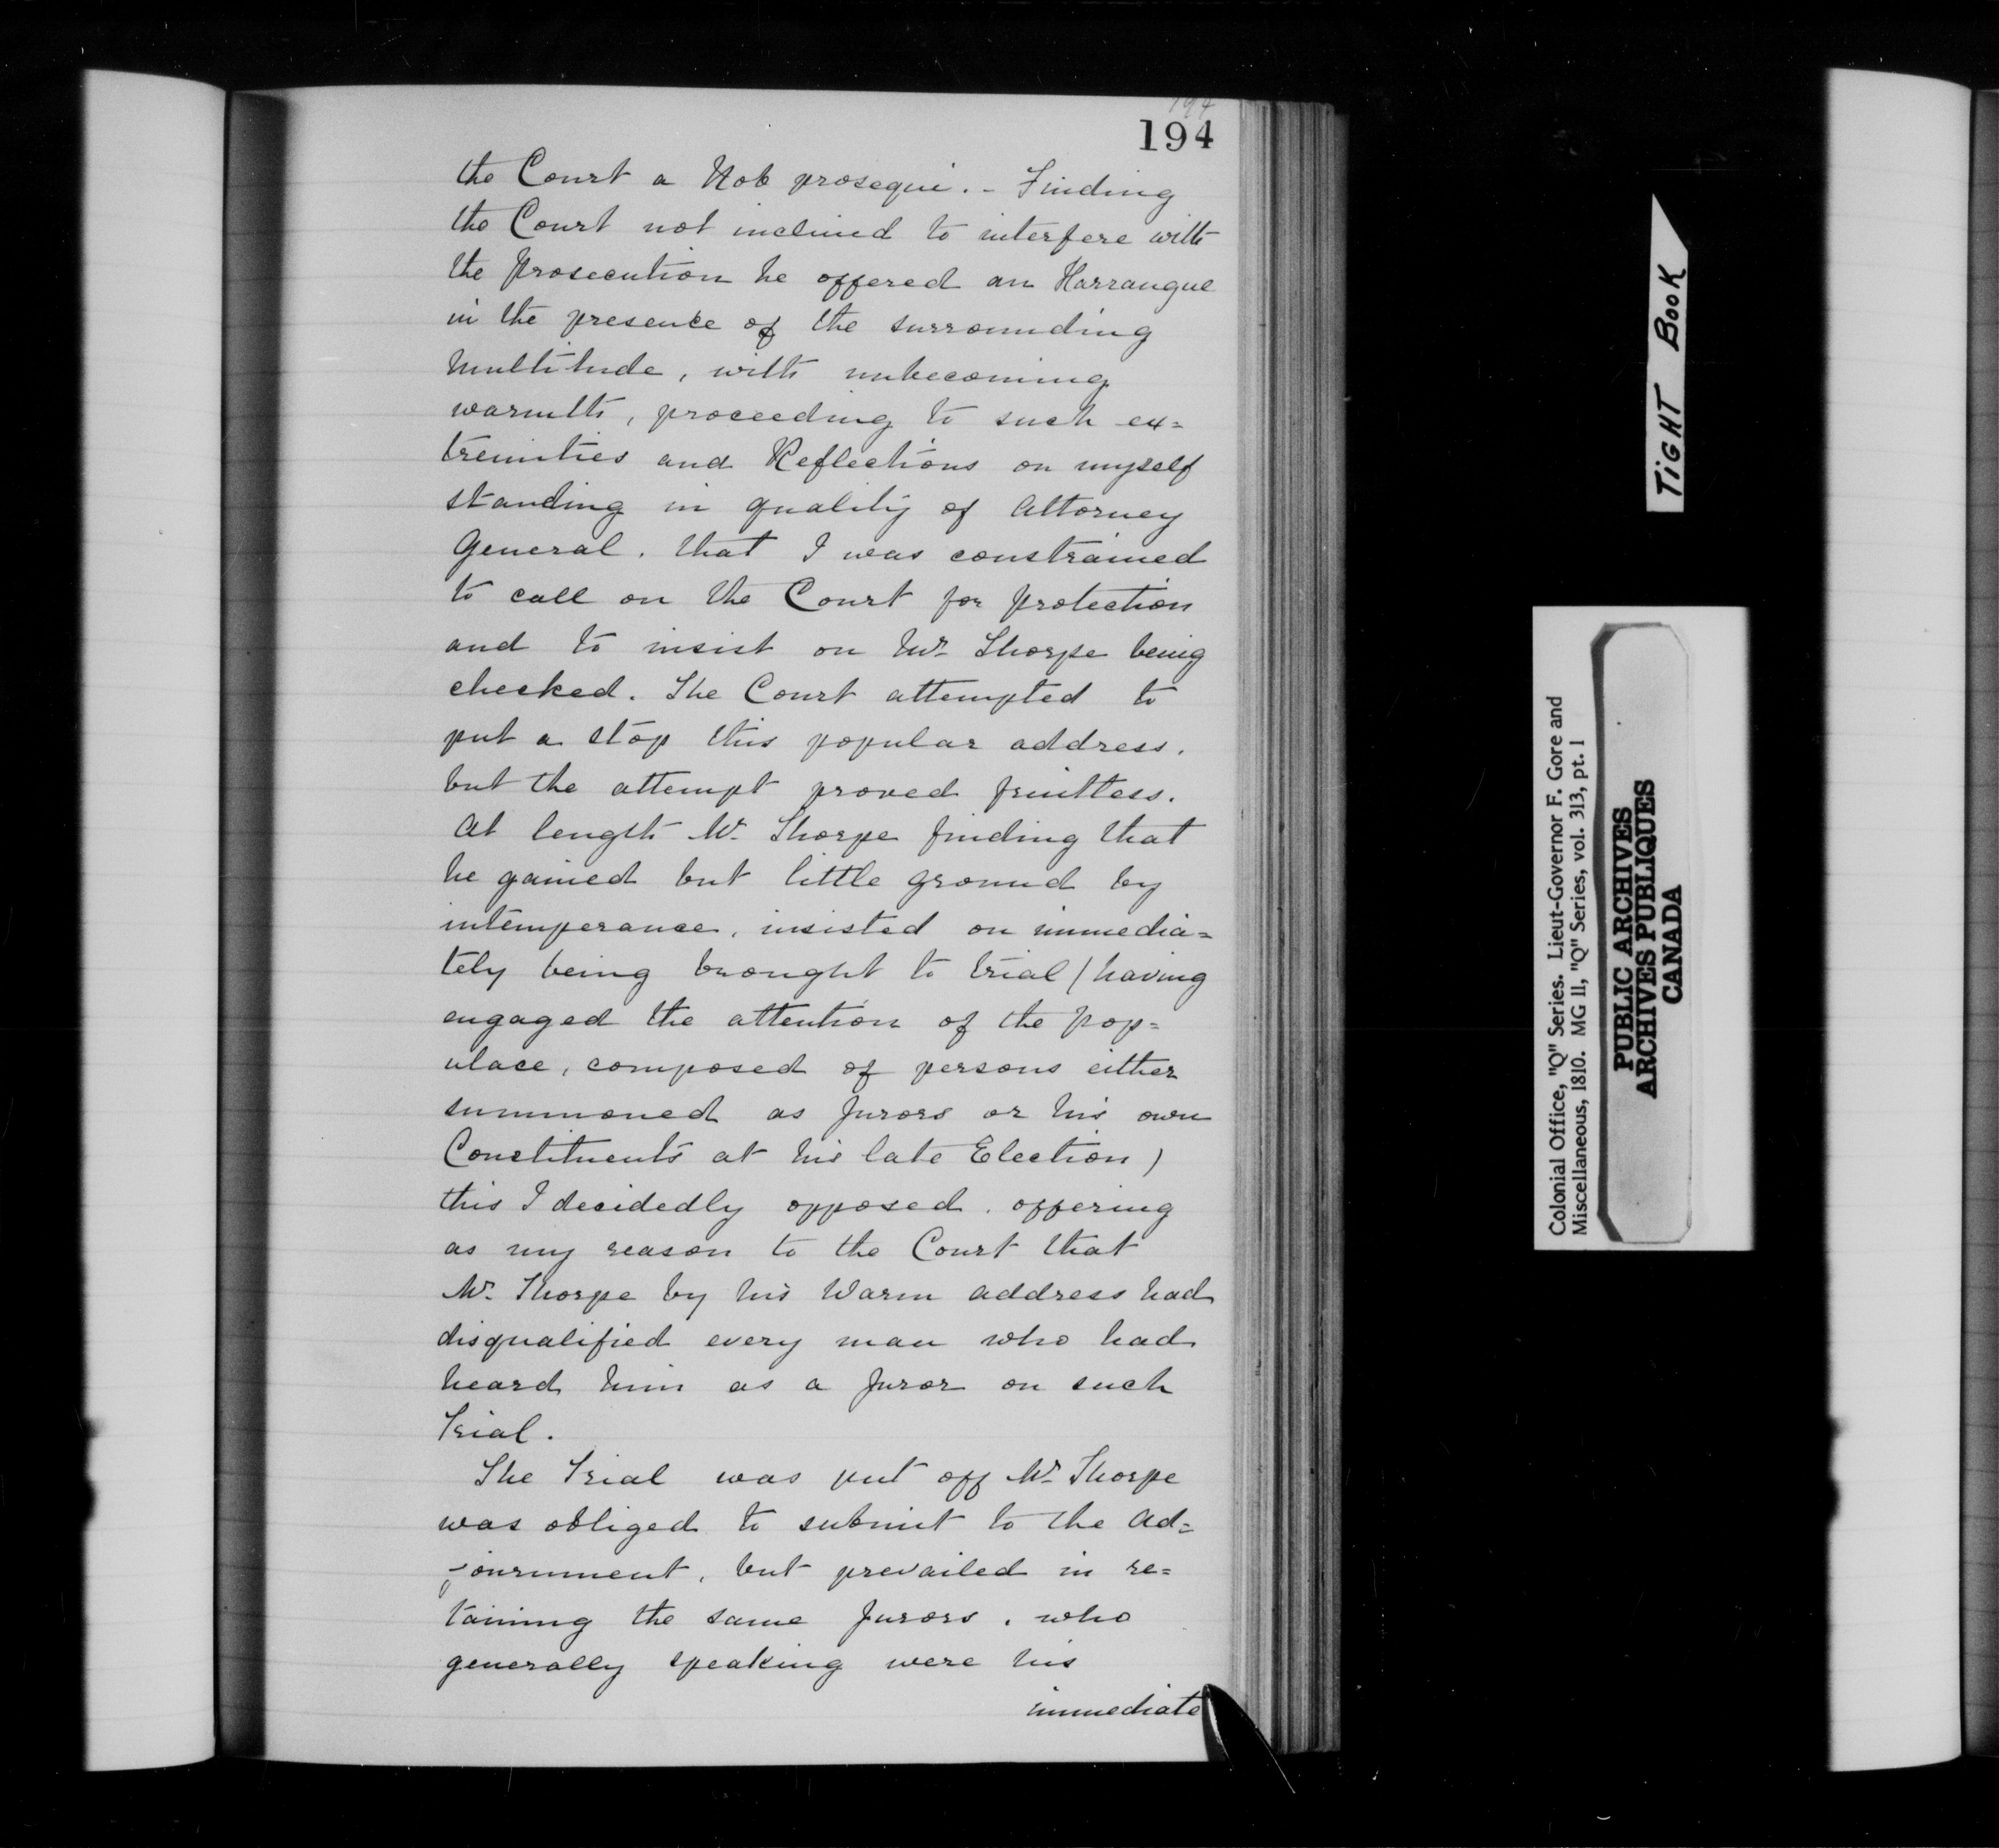 194
194
the Court a Nob prosequi. - Finding
the Court not inclined to interfere with
the prosecution he offered an Harrangue
in the presence of the surrounding
Multitude, with unbecoming
warmth, proceeding to such ex=
tremities and Reflections on myself
standing in quality of Attorney
General, that I was constrained
to call on the Court for protection
and to insist on Mr. Thorpe being
checked. The Court attempted to
put a stop this popular address,
but the attempt proved fruitless.
At length Mr. Thorpe finding that
he gained but little ground by
intemperance, insisted on immedia=
tely being brought to trial (having
engaged the attention of the pop=
ulace, composed of persons either
summoned as Jurors or his own
Constituents at his late Election)
this I decidedly opposed, offering
as my reason to the Court that
Mr. Thorpe by his Warm address had
disqualified every man who had
heard him as a Juror on such
Trial.
The Trial was put off Mr. Thorpe
was obliged to submit to the ad=
journment, but prevailed in re=
taining the same Jurors, who
generally speaking were his
immediate
TIGHT BOOK
Colonial Office, "Q" Series. Lieut-Governor F. Gore and
Miscellaneous, 1810. MG 11, "Q" Series, vol. 313, pt. 1
PUBLIC ARCHIVES
ARCHIVES PUBLIQUES
CANADA